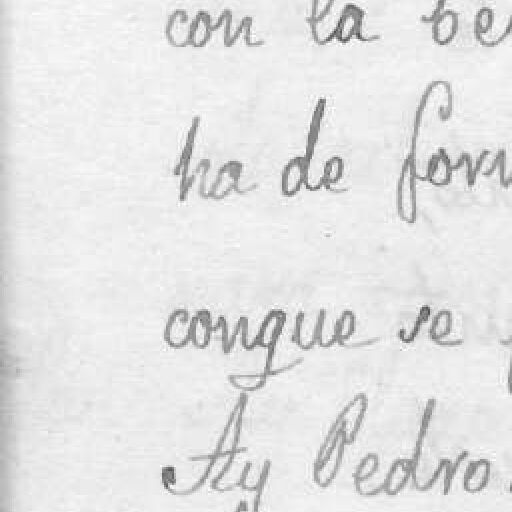 con la be
ha de for
conque se
Ay Pedro.